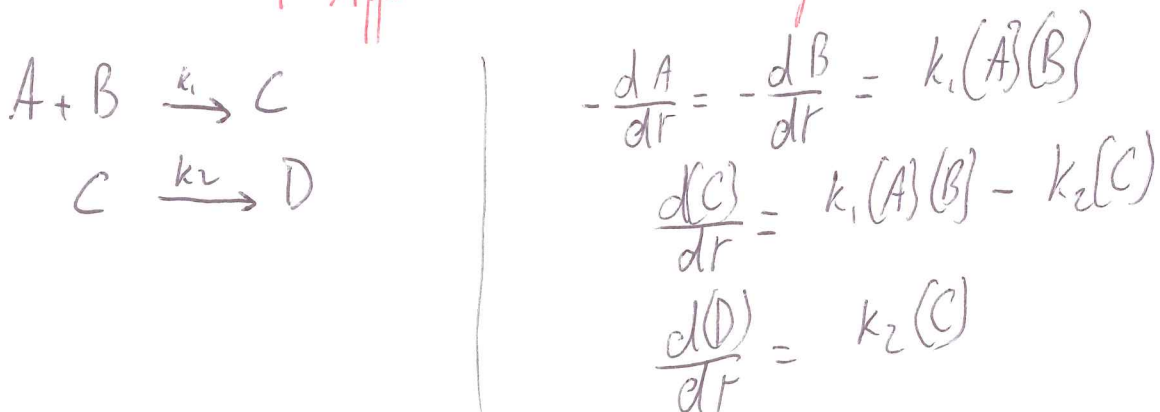 A + B k₁→ C
C k₂→ D
- dA/dt = - dB/dt = k₁(A)(B)
d(C)/dt = k₁(A)(B) - k₂(C)
d(D)/dt = k₂(C)